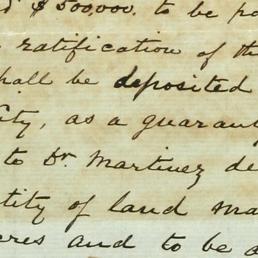 $500,000. to be pa
ratification of th
hall be deposited
City, as a guarant
to Dr. Martinez de
tity of land ma
cres and to be a